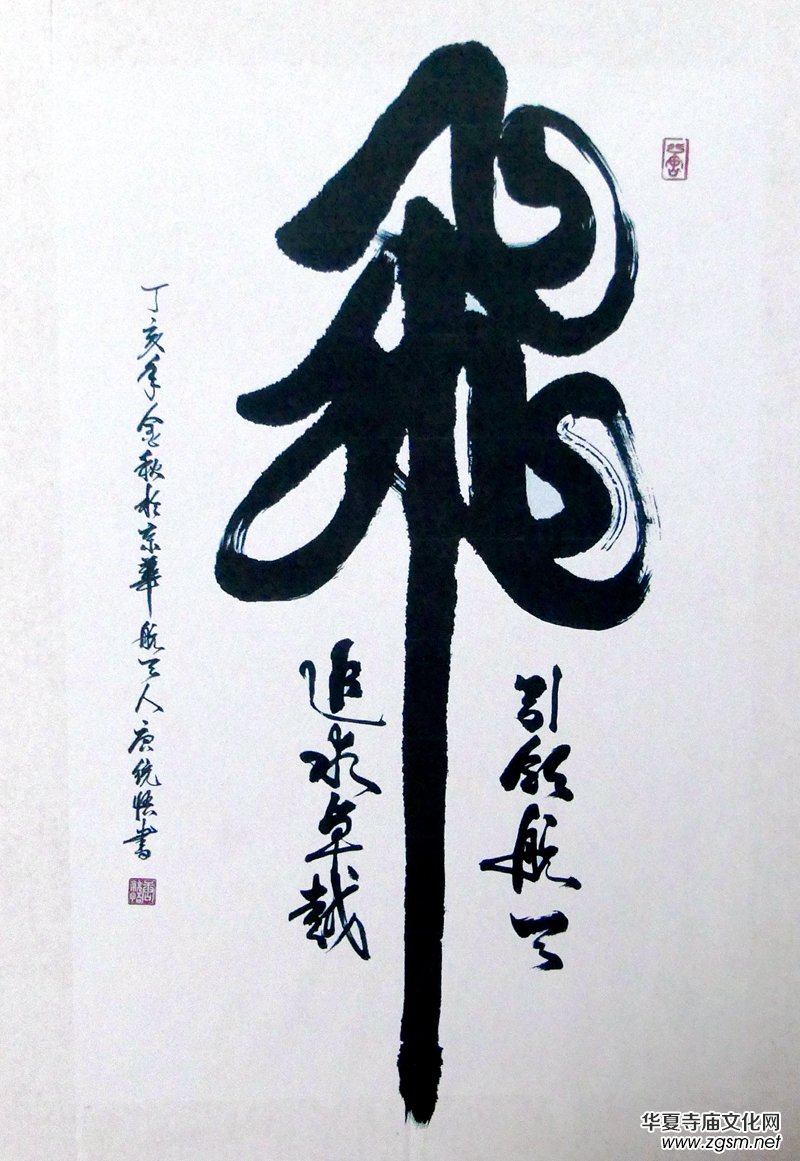 飛
引领航天
追求卓越
丁亥年金秋於京華航天人唐統悟書
华夏寺庙文化网
www.zgsm.net